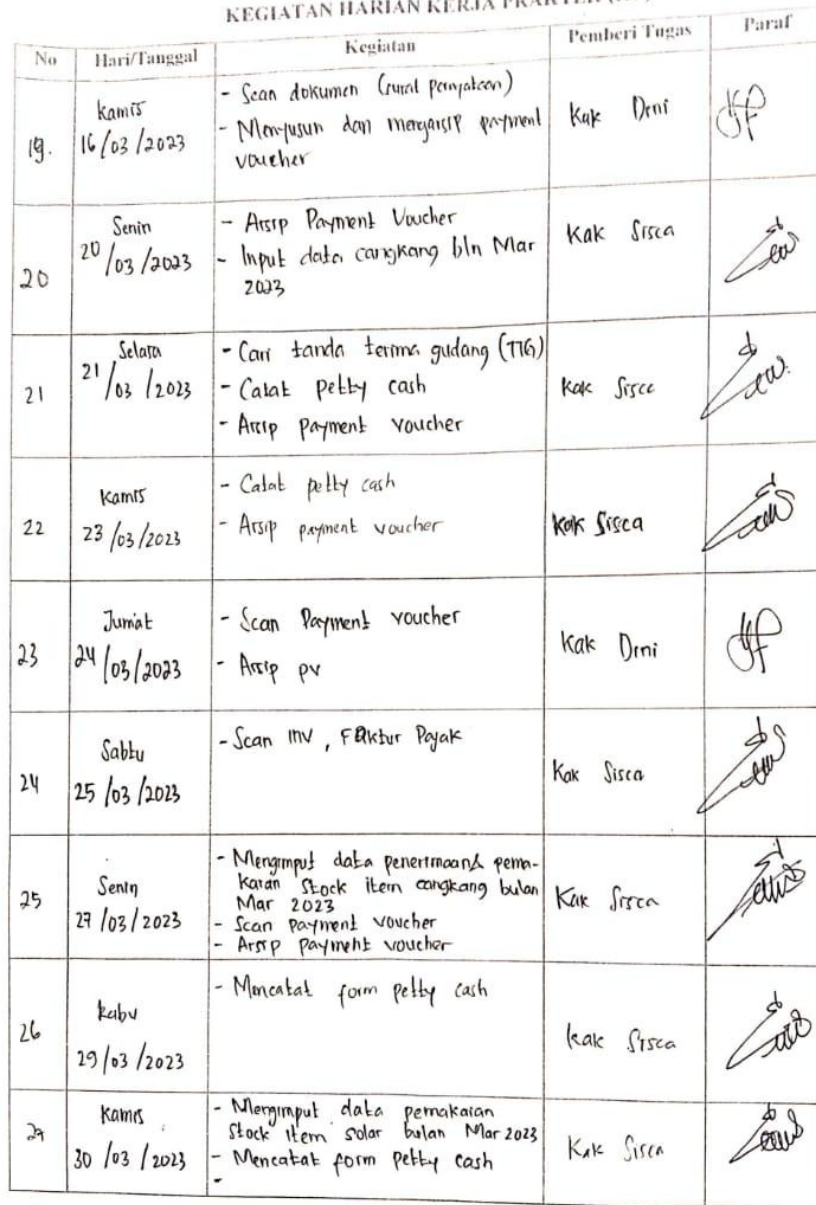 KEGIATAN HARIAN KERJA
No Hari/Tanggal Kegiatan Pemberi Tugas Paraf
19. Kamis 16/03/2023
- Scan dokumen (surat pernyataan)
- Menyusun dan mengarsip payment
voucher
Kak Deni
20 Senin 20/03/2023
- Arsip Payment Voucher
- Input data cangkang bln Mar
2023
Kak Sisca
21 Selasa 21/03/2023
- Cari tanda terima gudang (TTG)
- Catat petty cash
- Arsip Payment voucher
Kak Sisca
22 Kamis 23/03/2023
- Catat petty cash
- Arsip payment voucher
Kak Sisca
23 Jum'at 24/03/2023
- Scan Payment voucher
- Arsip pv
Kak Deni
24 Sabtu 25/03/2023
- Scan INV, Faktur Pajak
Kak Sisca
25 Senin 27/03/2023
- Mengimput data penerimaan & pema-
kaian Stock item cangkang bulan
Mar 2023
- Scan payment voucher
- Arsip payment voucher
Kak Sisca
26 Rabu 29/03/2023
- Mencatat form petty cash
Kak Sisca
27 Kamis 30/03/2023
- Mengimput data pemakaian
Stock item solar bulan Mar 2023
- Mencatat form petty cash
-
Kak Sisca